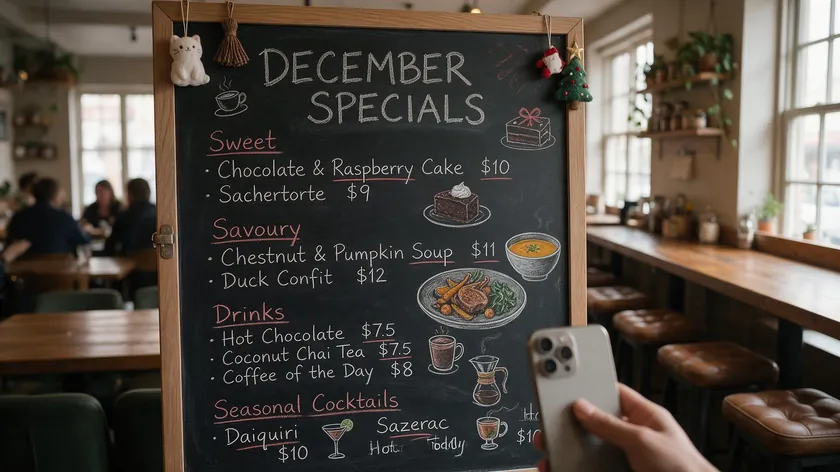 DECEMBER
SPECIALS
Sweet
· Chocolate & Raspberry Cake $10
· Sachertorte $9
Savoury
· Chestnut & Pumpkin Soup $11
· Duck Confit $12
Drinks
· Hot Chocolate $7.5
· Coconut Chai Tea $7.5
· Coffee of the Day $8
Seasonal Cocktails
· Daiquiri
$10
Sazerac
Hot